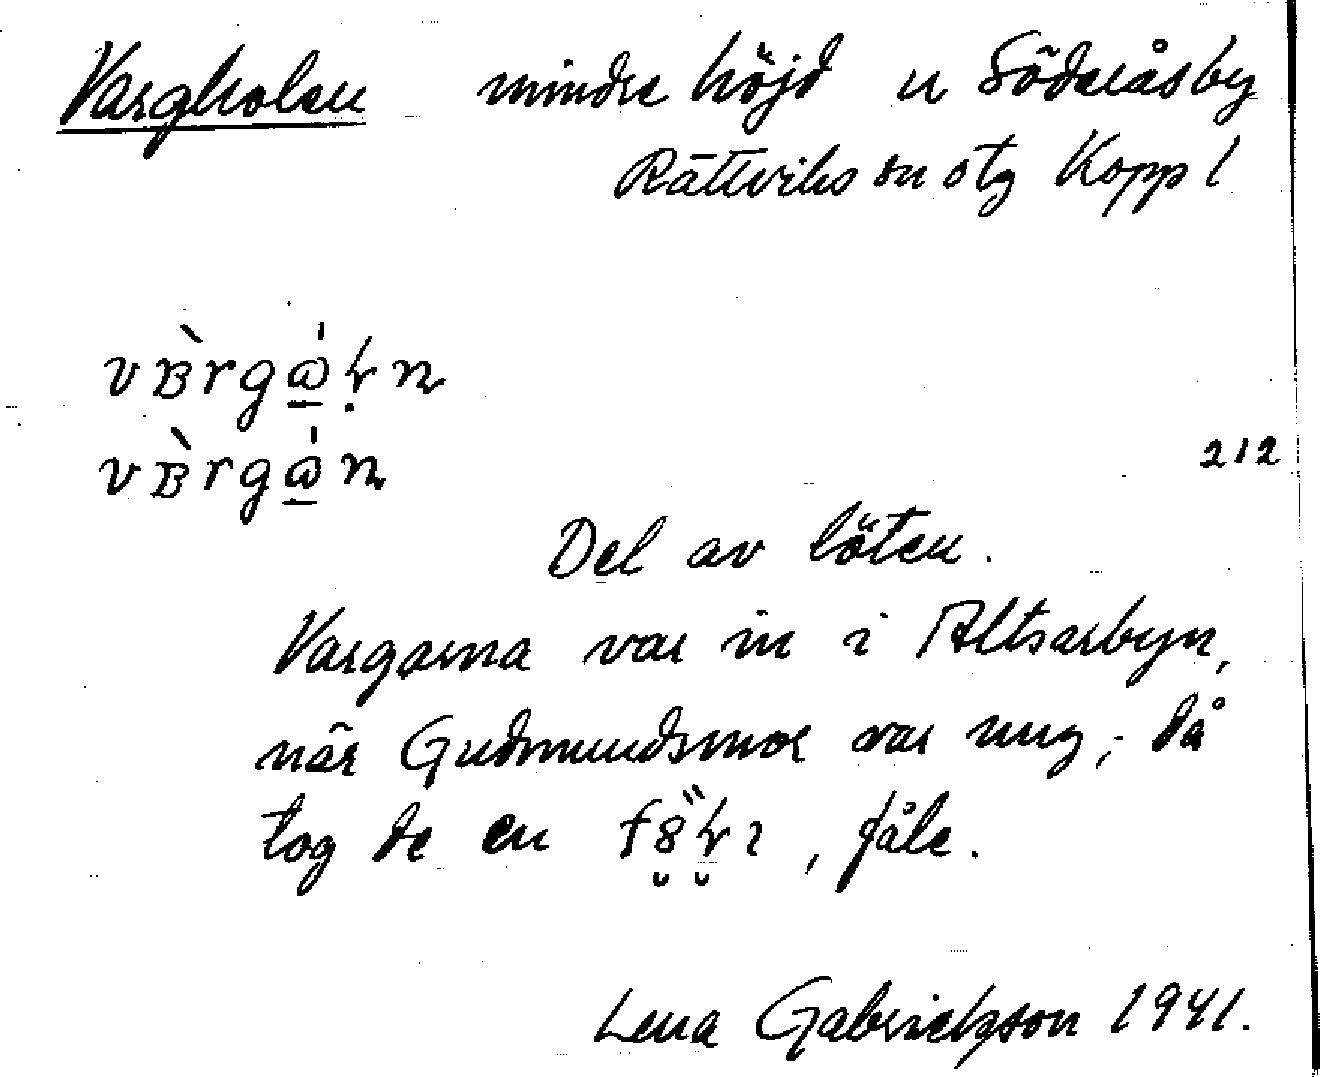 Vargholen mindre höjd n Söderåsby
Rättviks sn otg Kopp l
212
Del av löten.
Vargarna var in i Altsarbyn,
när Gudmundsmor var ung, då
tog de en , fåle.
Lena Gabrielsson 1941.